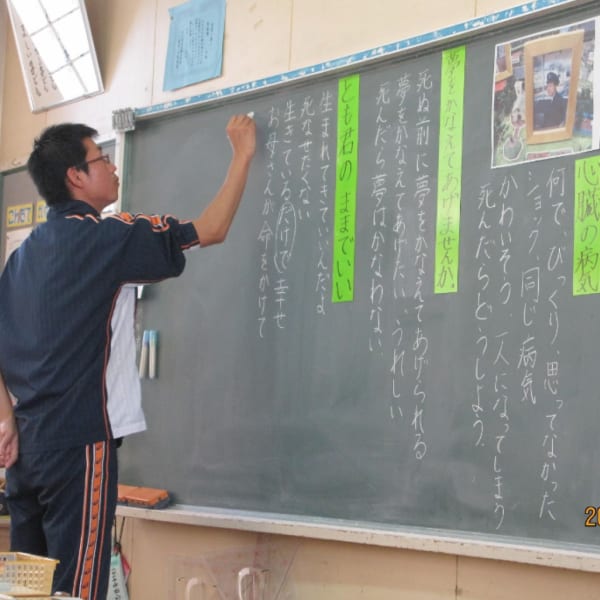 心臓の病気
何で、びっくり、思ってなかった
ショック、同じ病気
かわいそう、一人になってしまう
死んだらどうしよう、
夢をかなえてあげませんか。
死ぬ前に夢をかなえてあげられる
夢をかなえてあげたい、うれしい
死んだら夢はかなわない、
とも君のままでいい
生まれてきていいんだよ
死なせたくない
生きている(だけで)幸せ
お母さんが命をかけて
20